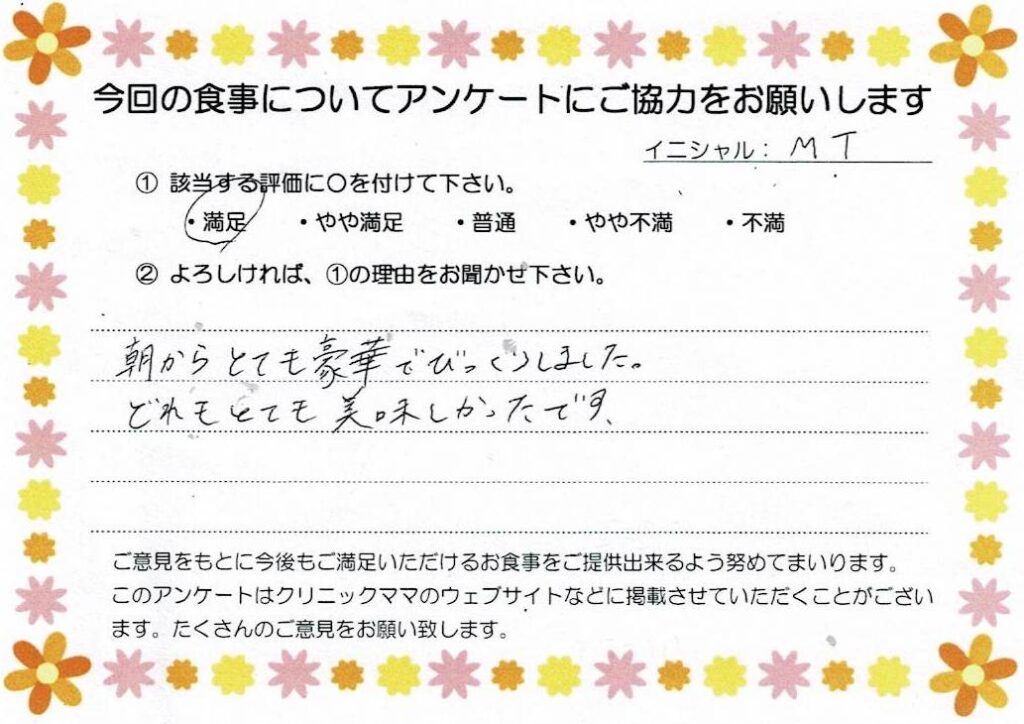 今回の食事についてアンケートにご協力をお願いします
イニシャル： M T
① 該当する評価に○を付けて下さい。
・満足 ・やや満足 ・普通 ・やや不満 ・不満
② よろしければ、①の理由をお聞かせ下さい。
朝からとても豪華でびっくりしました。
どれもとても美味しかったです、
ご意見をもとに今後もご満足いただけるお食事をご提供出来るよう努めてまいります。
このアンケートはクリニックママのウェブサイトなどに掲載させていただくことがござい
ます。たくさんのご意見をお願い致します。